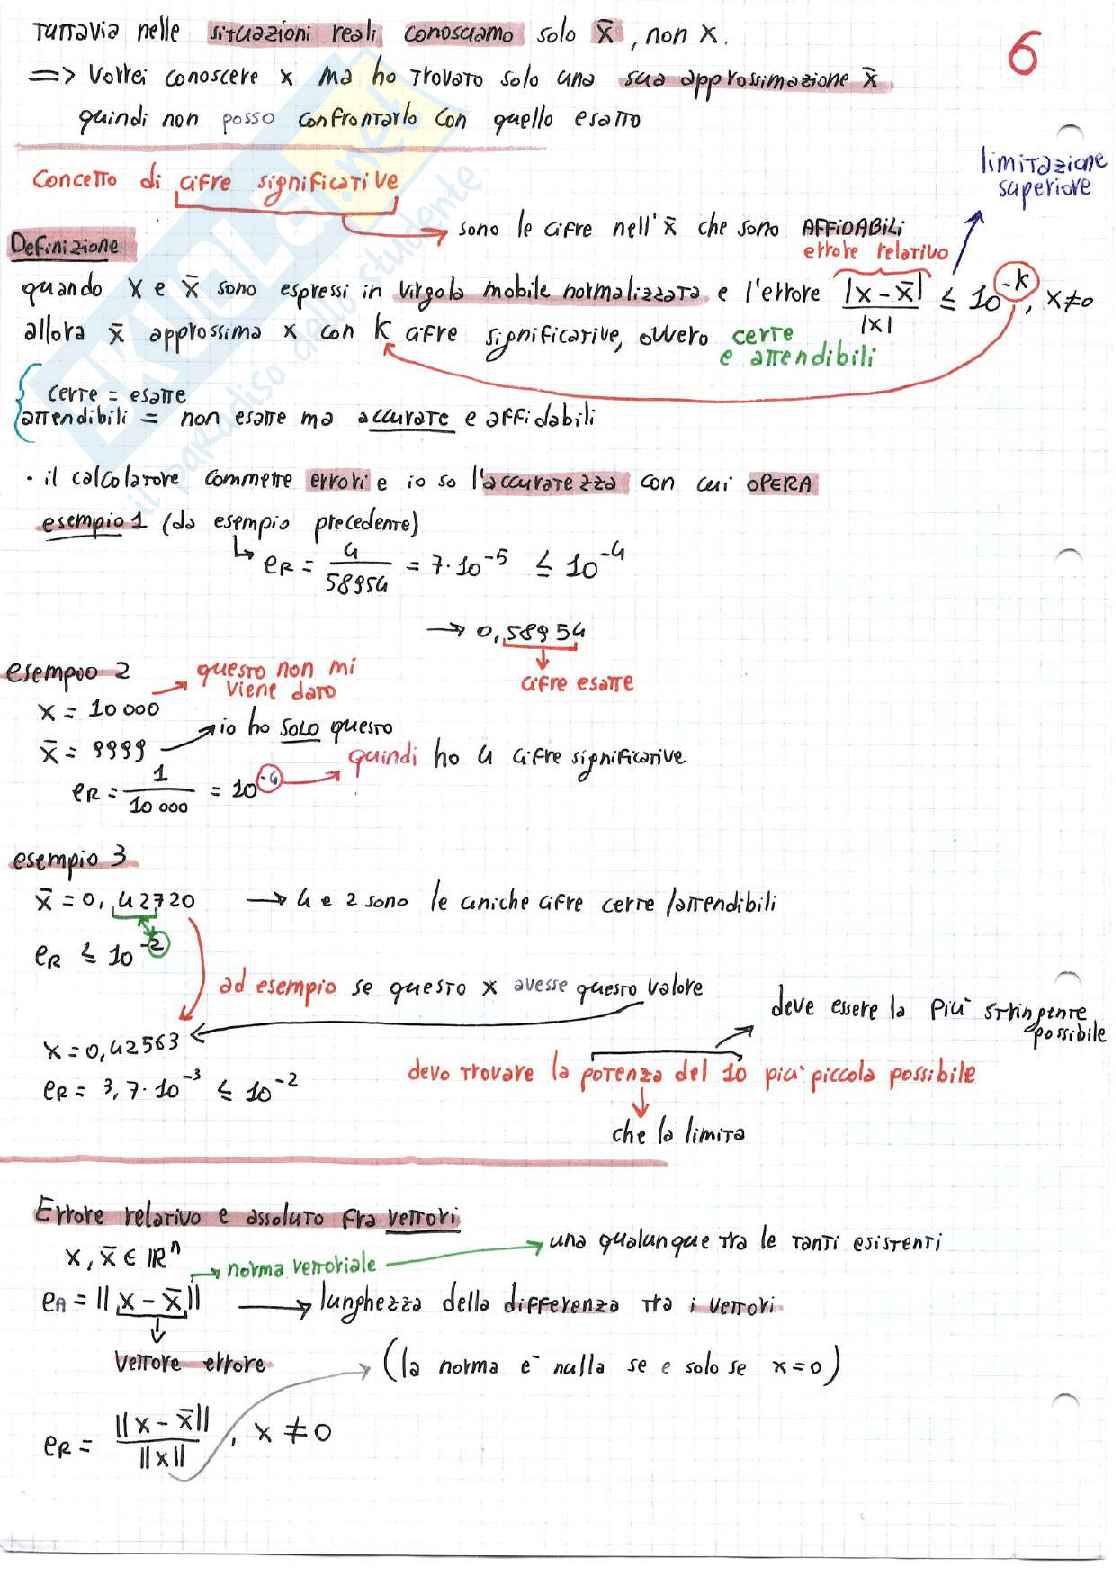 Tuttavia nelle situazioni reali conosciamo solo x̄, non x.
6
=> Vorrei conoscere x ma ho trovato solo una sua approssimazione x̄
quindi non posso confrontarlo con quello esatto
limitazione
superiore
Concetto di cifre significative
sono le cifre nell' x̄ che sono AFFIDABILI
errore relativo
Definizione
quando x e x̄ sono espressi in virgola mobile normalizzata e l'errore |x - x̄| / |x| ≤ 10^-k, x≠0
allora x̄ approssima x con k cifre significative, ovvero certe
e attendibili
certe = esatte
attendibili = non esatte ma accurate e affidabili
• il calcolatore commette errori e io so l'accuratezza con cui OPERA
esempio 1 (da esempio precedente)
eR = 4 / 58954 = 7·10^-5 ≤ 10^-4
→ 0,58954
cifre esatte
esempoo 2
questo non mi
viene dato
x = 10 000
io ho SOLO questo
x̄ = 9999
quindi ho 4 cifre significative
eR = 1 / 10 000 = 10^-4
esempio 3
x̄ = 0,42720 → 4 e 2 sono le uniche cifre certe / attendibili
eR ≤ 10^-2
ad esempio se questo x avesse questo valore
deve essere la più stringente
possibile
x = 0,42563
devo trovare la potenza del 10 più piccola possibile
eR = 3,7·10^-3 ≤ 10^-2
che la limita
Errore relativo e assoluto fra vettori
x, x̄ ∈ ℝ^n
una qualunque tra le tanti esistenti
norma vettoriale
eA = ||x - x̄|| → lunghezza della differenza tra i vettori
vettore errore
(la norma è nulla se e solo se x = 0)
eR = ||x - x̄|| / ||x||, x ≠ 0
SKUOLA.net
il paradiso dello studente